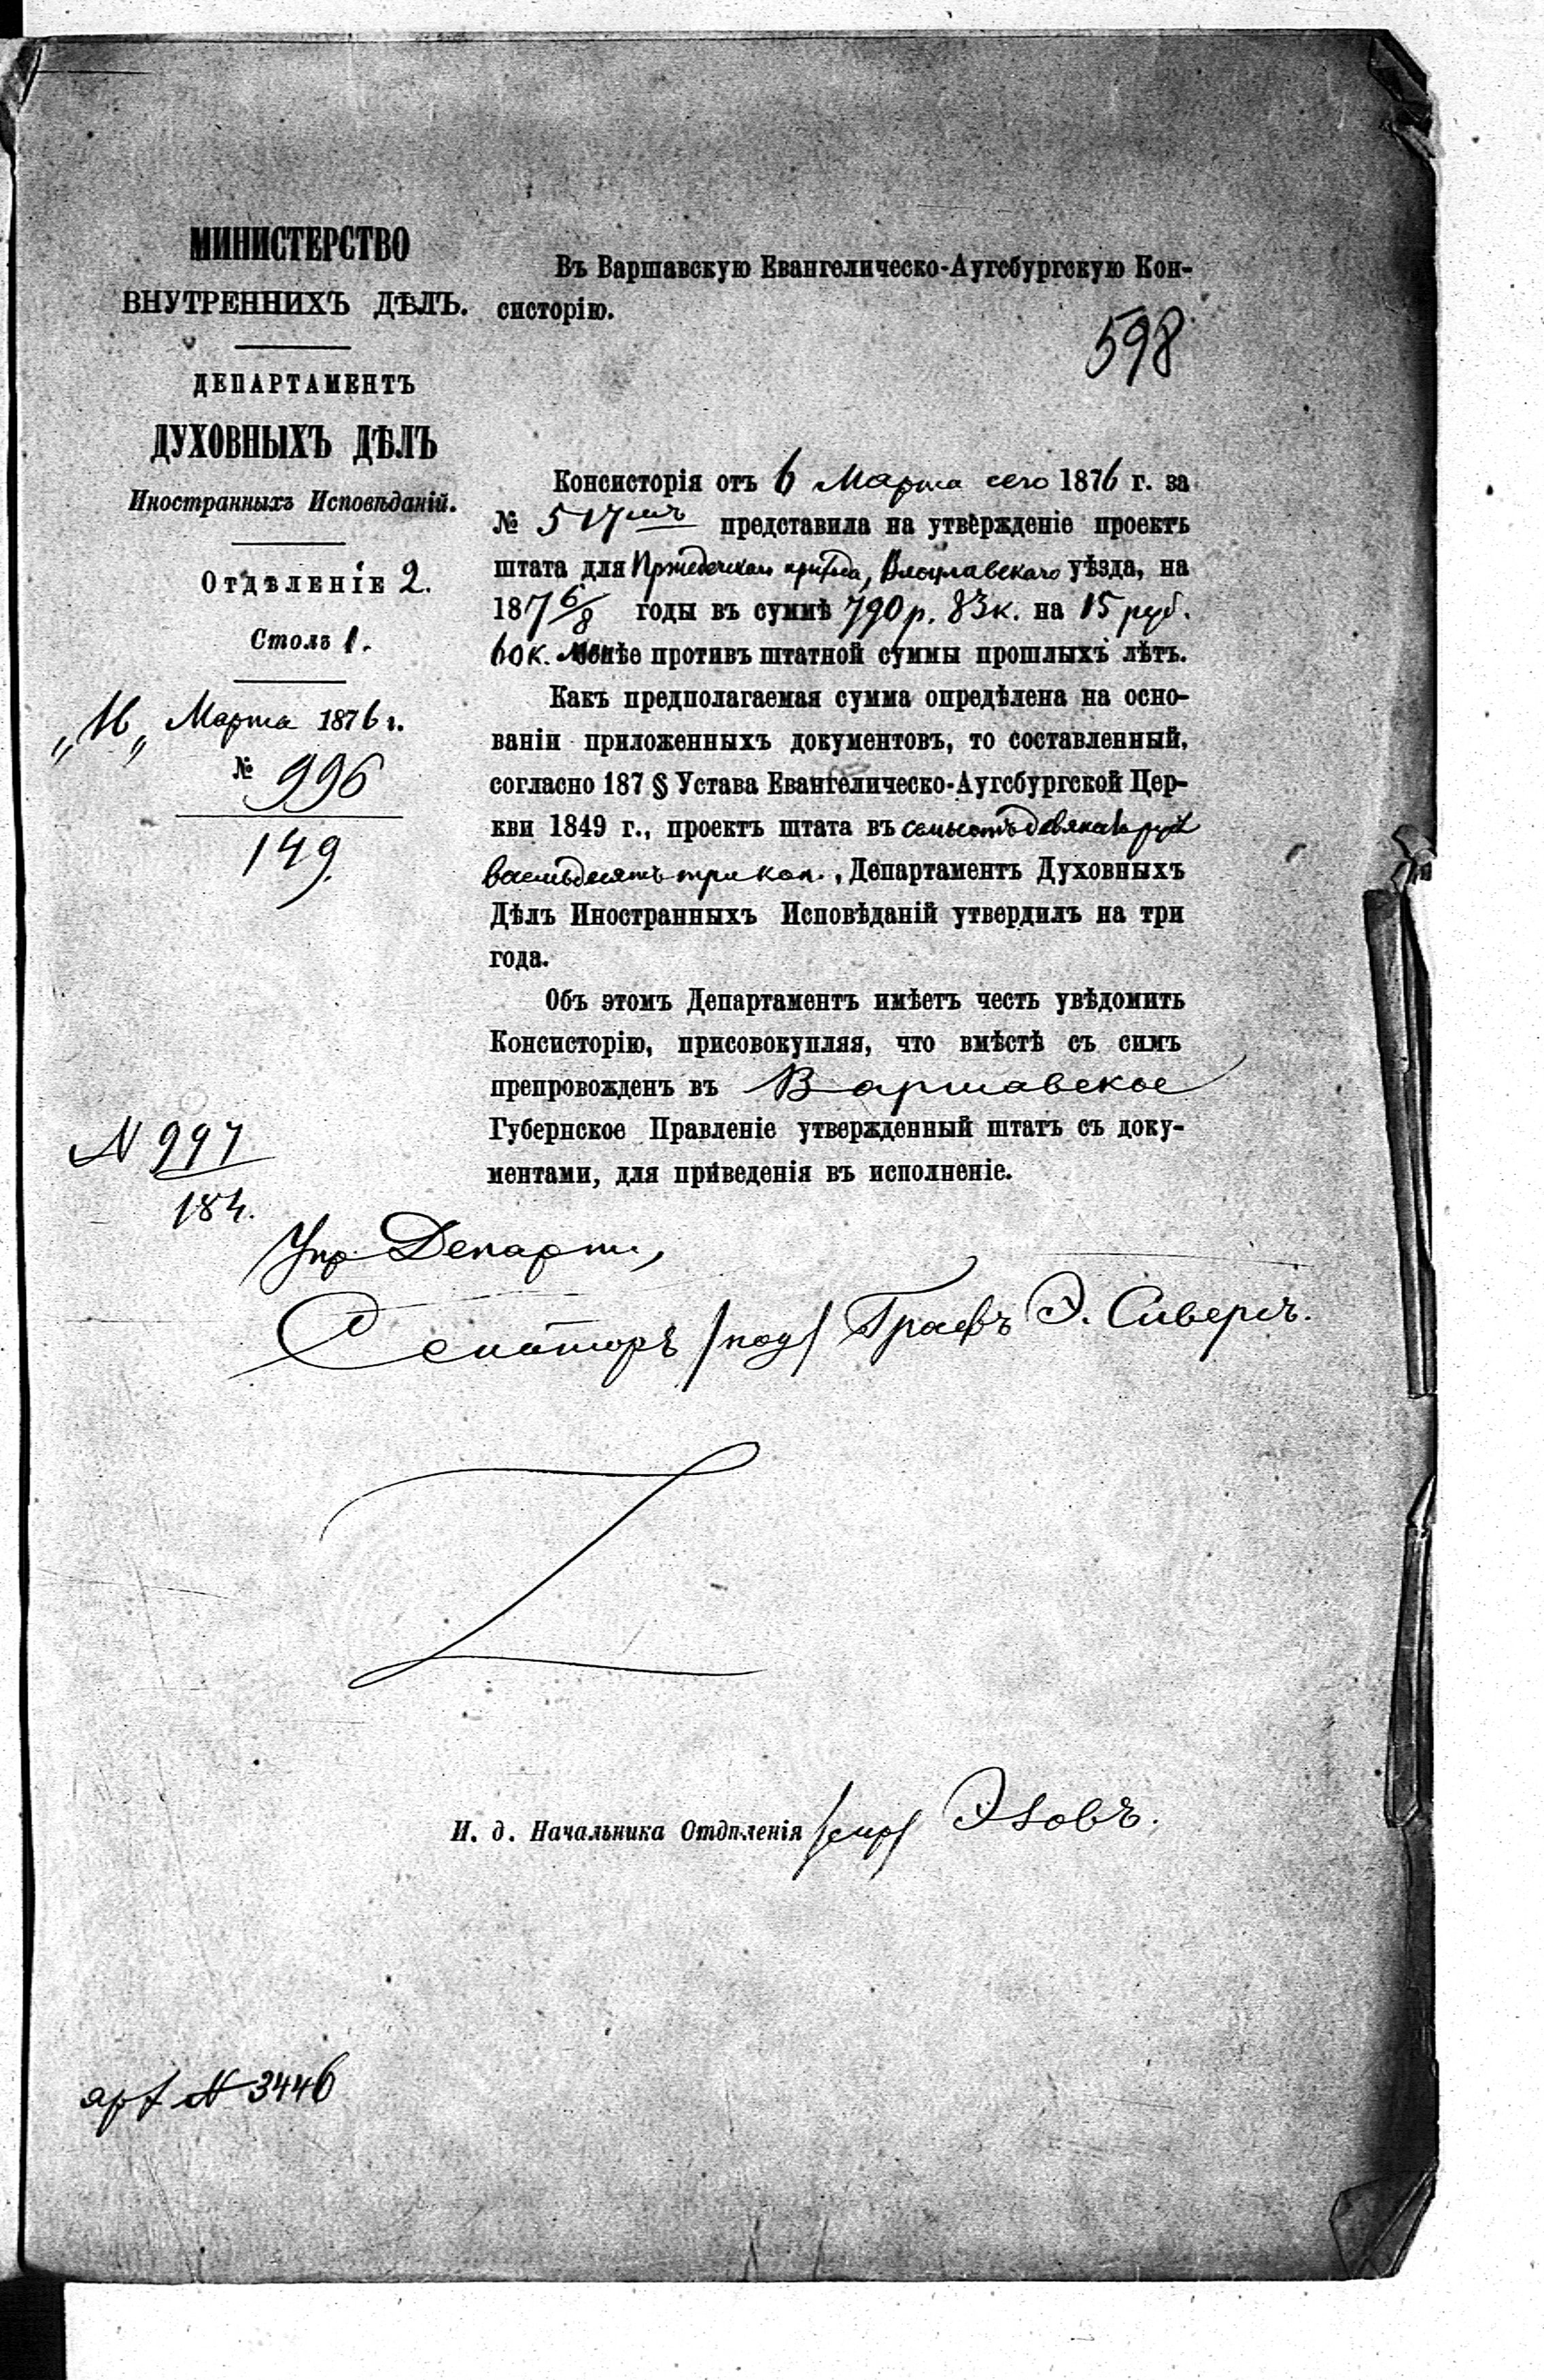 МИНИСТЕРСТВО
ВНУТРЕННИХЪ ДѢЛЪ.
ДЕПАРТАМЕНТЪ
ДУХОВНЫХЪ ДѢЛЪ
Иностранныхъ Исповѣданій.
Отдѣленіе 2.
Столъ 1.
Марта 1876 г.
№ 996
149.
N 997
184.
Въ Варшавскую Евангелическо-Аугсбургскую Кон-
систорію.
598
Консисторія отъ 6 Марта сего 1876 г. за
№ 517 представила на утвержденіе проектъ
штата для прихода, Влоцлавскаго уѣзда, на
187 6/8 годы въ суммѣ 790 р. 83 к. на 15 руб.
60 к. менѣе противъ штатной суммы прошлыхъ лѣтъ.
Какъ предполагаемая сумма опредѣлена на осно-
ваніи приложенныхъ документовъ, то составленный,
согласно 187 § Устава Евангелическо-Аугсбургской Цер-
кви 1849 г., проектъ штата въ семьсотъ девяносто руб
восемьдесятъ три коп., Департаментъ Духовныхъ
Дѣлъ Иностранныхъ Исповѣданій утвердилъ на три
года.
Объ этомъ Департаментъ имѣетъ честь увѣдомить
Консисторію, присовокупляя, что вмѣстѣ съ симъ
препровожденъ въ Варшавское
Губернское Правленіе утвержденный штатъ съ доку-
ментами, для приведенія въ исполненіе.
Упр Департ.,
Сенаторъ /под/ Графъ Э. Сиверсъ.
И. д. Начальника Отдѣленія /скр/ Эзовъ.
N 3446